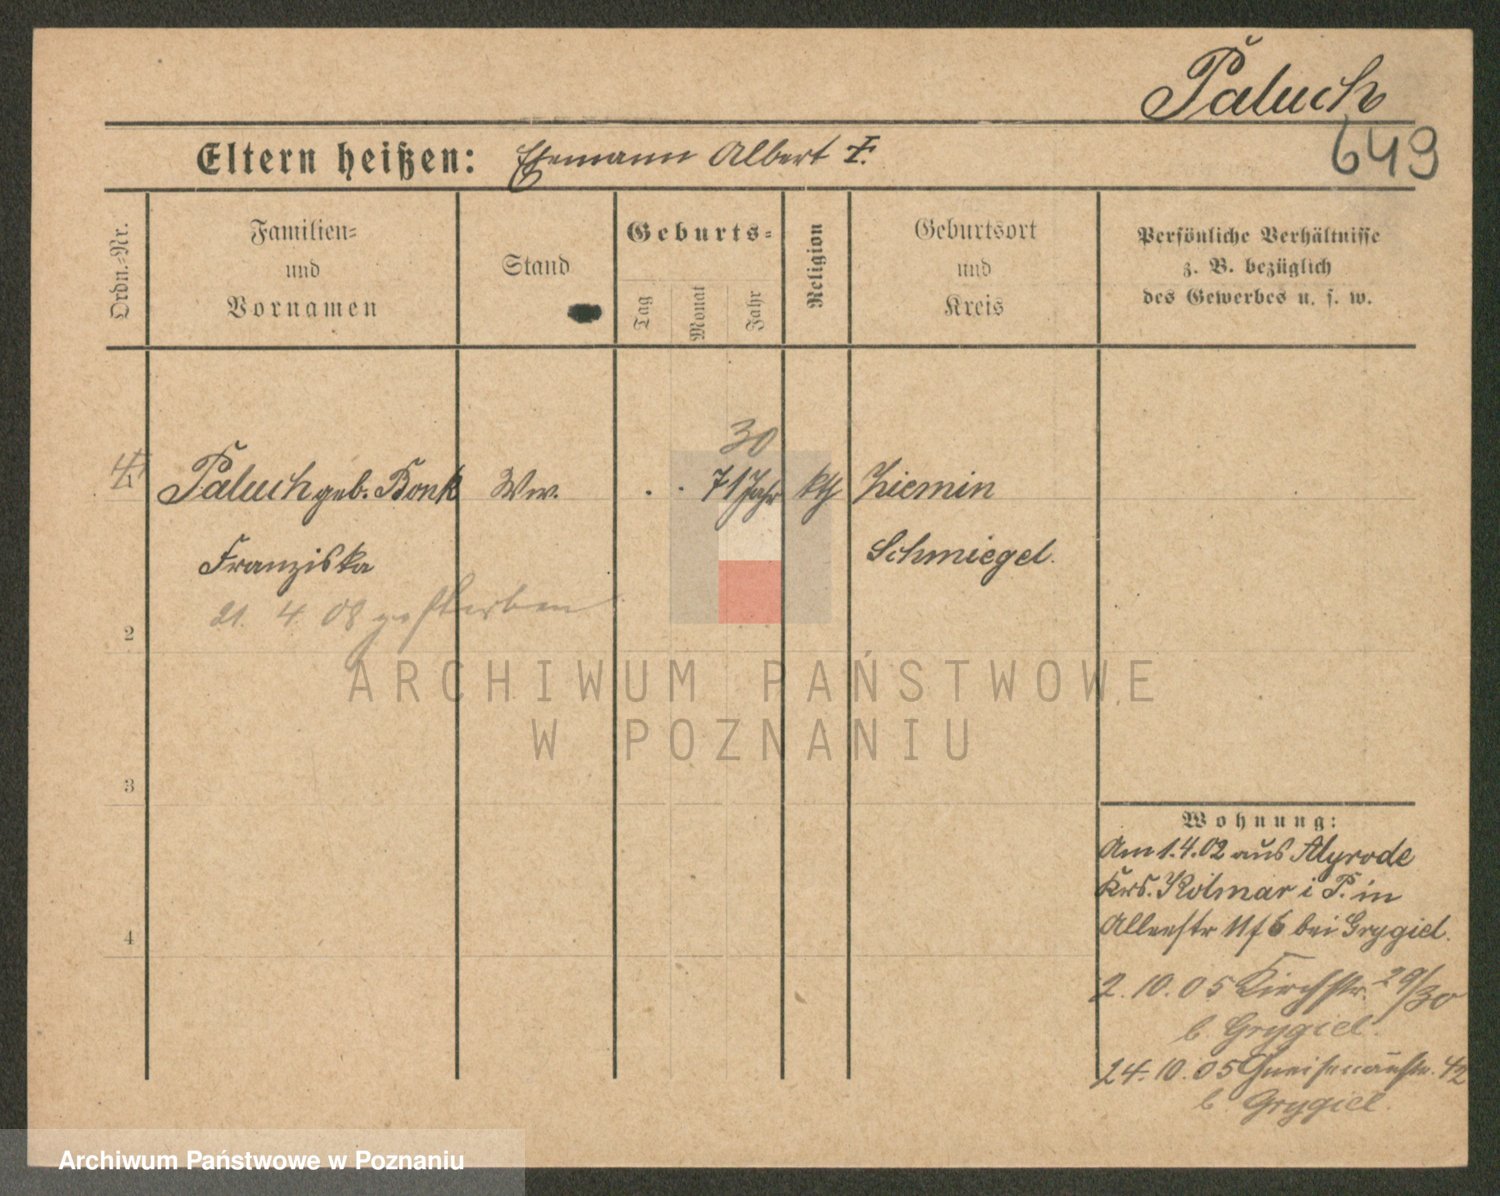 Paluch
649
Eltern heißen: Ehemann Albert †.
Ordn.-Nr.
Familien-
und
Vornamen
Stand
Geburts-
Tag
Monat
Jahr
Religion
Geburtsort
und
Kreis
Persönliche Verhältnisse
z. B. bezüglich
des Gewerbes u. s. w.
30
Paluch geb. Bonk Ww. 71 Jahr kth Ziemin
Franziska Schmiegel.
21. 4. 08 gestorben
2
3
4
ARCHIWUM PAŃSTWOWE
W POZNANIU
Wohnung:
Am 1.4.02 aus
Krs. Kolmar i P. in
Alleestr 11/6 bei Grygiel.
2. 10. 05 Kirchstr. 29/30
b. Grygiel.
24. 10. 05 Gneisenaustr. 42
b. Grygiel.
Archiwum Państwowe w Poznaniu